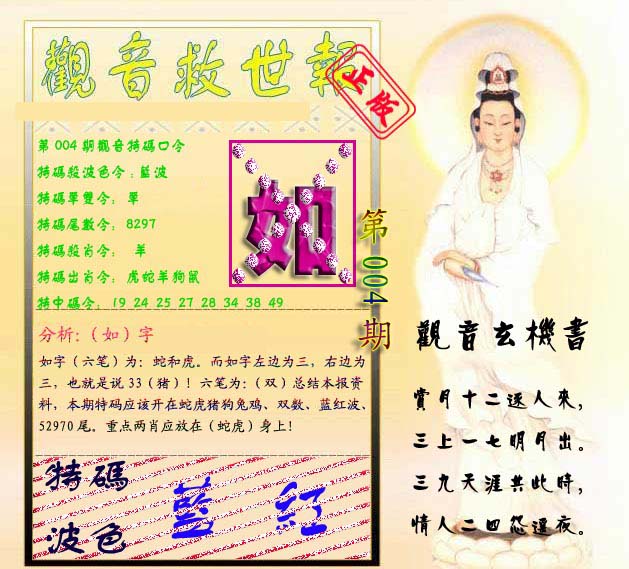 觀音救世報
正版
第004期觀音特碼口令
特碼殺波色令：藍波
特碼單雙令：單
特碼尾數令：8297
特碼殺肖令： 羊
特碼出肖令：虎蛇羊狗鼠
特中碼令：19 24 25 27 28 34 38 49
如
第004期
分析:（如）字
如字（六笔）为：蛇和虎。而如字左边为三，右边为
三，也就是说33（猪）！六笔为：（双）总结本报资
料，本期特码应该开在蛇虎猪狗兔鸡、双数、蓝红波、
52970尾。重点两肖应放在（蛇虎）身上！
特碼
波色
藍 紅
觀音玄機書
賞月十二逐人來，
三上一七明月出。
三九天涯共此時，
情人二四怨遥夜。